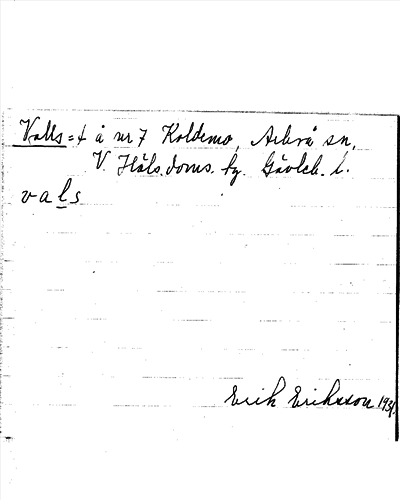 Valls = t å nr 7 Koldemo, Arbrå sn,
V. Häls. doms. hg. Gävleb. l.
vals
Erik Eriksson 1931.